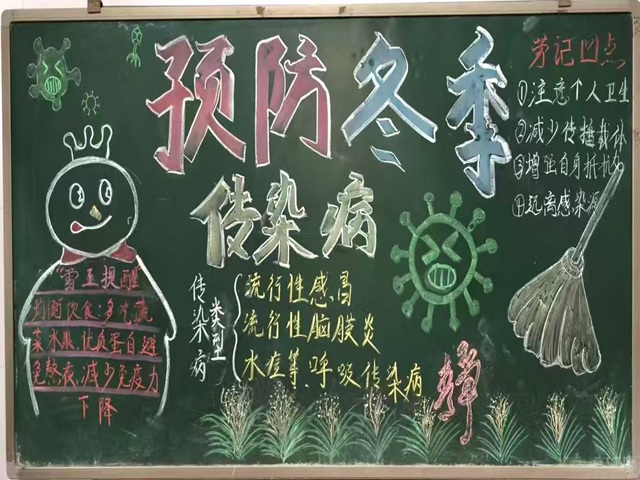 预防冬季
传染病
记凹点
①注意个人卫生
②减少传播载体
③增强自身抵抗
④远离感染源
"雪王提醒"
均衡饮食:多吃蔬
菜水果,优质蛋白避
免熬夜,减少免疫力
下降
传染病
类型
流行性感冒
流行性脑膜炎
水痘等呼吸传染病